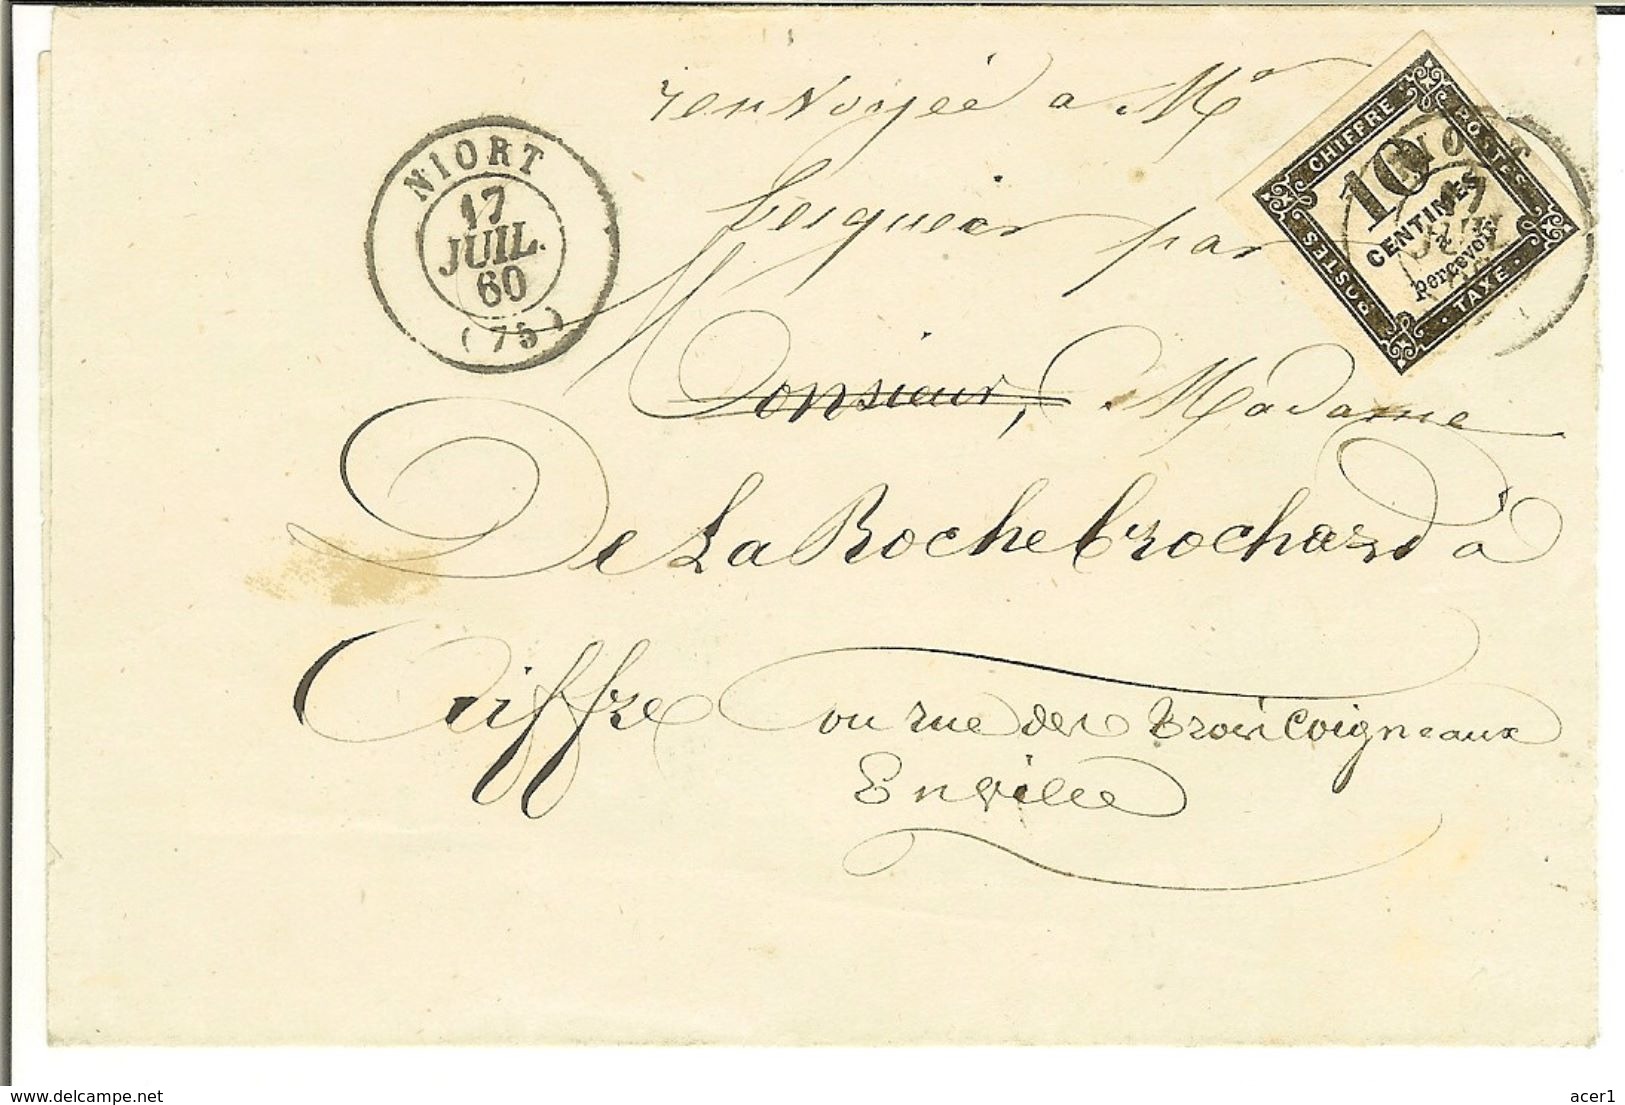 renvoyée a Mr
par
NIORT
17
JUIL.
60
(75)
CHIFFRE
POSTES
10
CENTIMES
à
percevoir
POSTES
TAXE
NIORT
17
Monsieur, Madame
De La Rochebrochard à
Aiffre ou rue des trois Coigneaux
Enville
www.delcampe.net
acer1